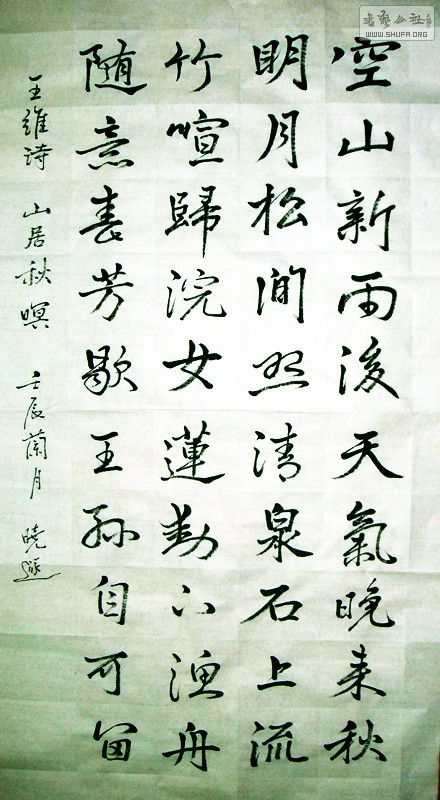 書藝公社
WWW.SHUFA.ORG
空山新雨後天氣晚来秋
明月松间照清泉石上流
竹喧歸浣女蓮動下渔舟
随意春芳歇王孫自可留
王維诗 山居秋暝 壬辰蘭月 曉